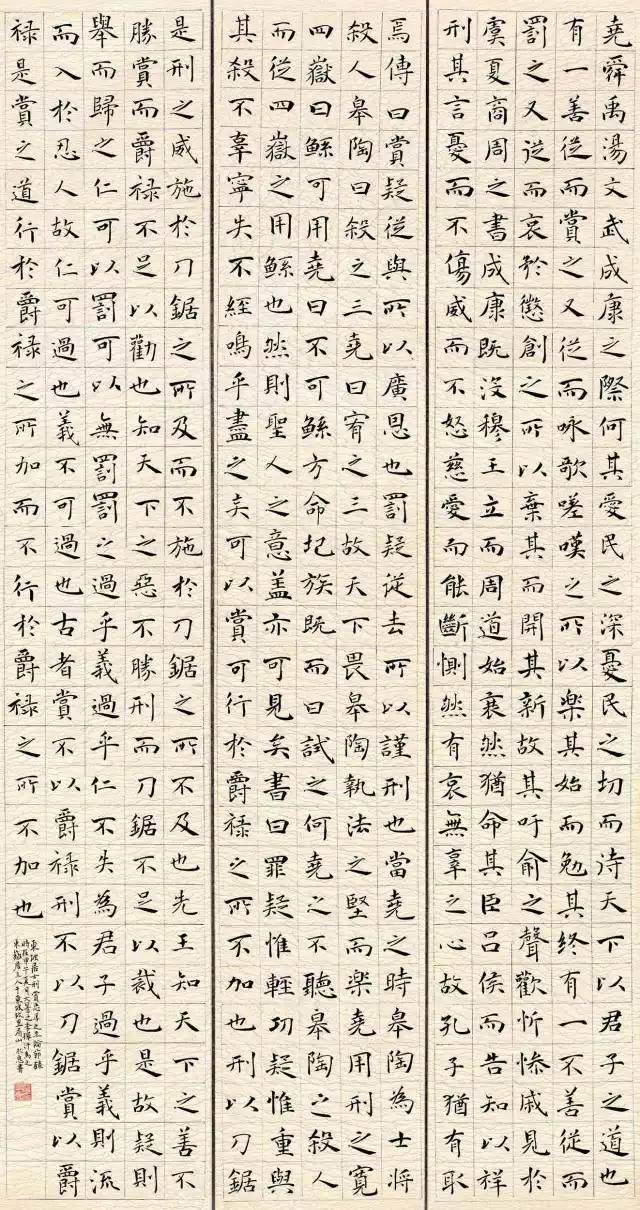 堯舜禹湯文武成康之際何其愛民之深憂民之切而待天下以君子之道也
有一善從而賞之又從而咏歌嗟嘆之所以樂其始而勉其終有一不善從而
罰之又從而哀矜懲創之所以棄其而開其新故其吁俞之聲歡忻慘戚見於
虞夏商周之書成康既沒穆王立而周道始衰然猶命其臣呂侯而告知以祥
刑其言憂而不傷威而不怒慈愛而能斷惻然有哀無辜之心故孔子猶有取
焉傳曰賞疑從與所以廣恩也罰疑從去所以謹刑也當堯之時皋陶為士將
殺人皋陶曰殺之三堯曰宥之三故天下畏皋陶執法之堅而樂堯用刑之寬
四嶽曰鯀可用堯曰不可鯀方命圮族既而曰試之何堯之不聽皋陶之殺人
而從四嶽之用鯀也然則聖人之意蓋亦可見矣書曰罪疑惟輕功疑惟重與
其殺不辜寧失不經嗚乎盡之矣可以賞可行於爵祿之所不加也刑以刀鋸
是刑之威施於刀鋸之所及而不施於刀鋸之所不及也先王知天下之善不
勝賞而爵祿不足以勸也知天下之惡不勝刑而刀鋸不足以裁也是故疑則
舉而歸之仁可以罰可以無罰罰之過乎義過乎仁不失為君子過乎義則流
而入於忍人故仁可過也義不可過也古者賞不以爵祿刑不以刀鋸賞以爵
祿是賞之道行於爵祿之所加而不行於爵祿之所不加也
東坡居士刑賞忠厚之至論